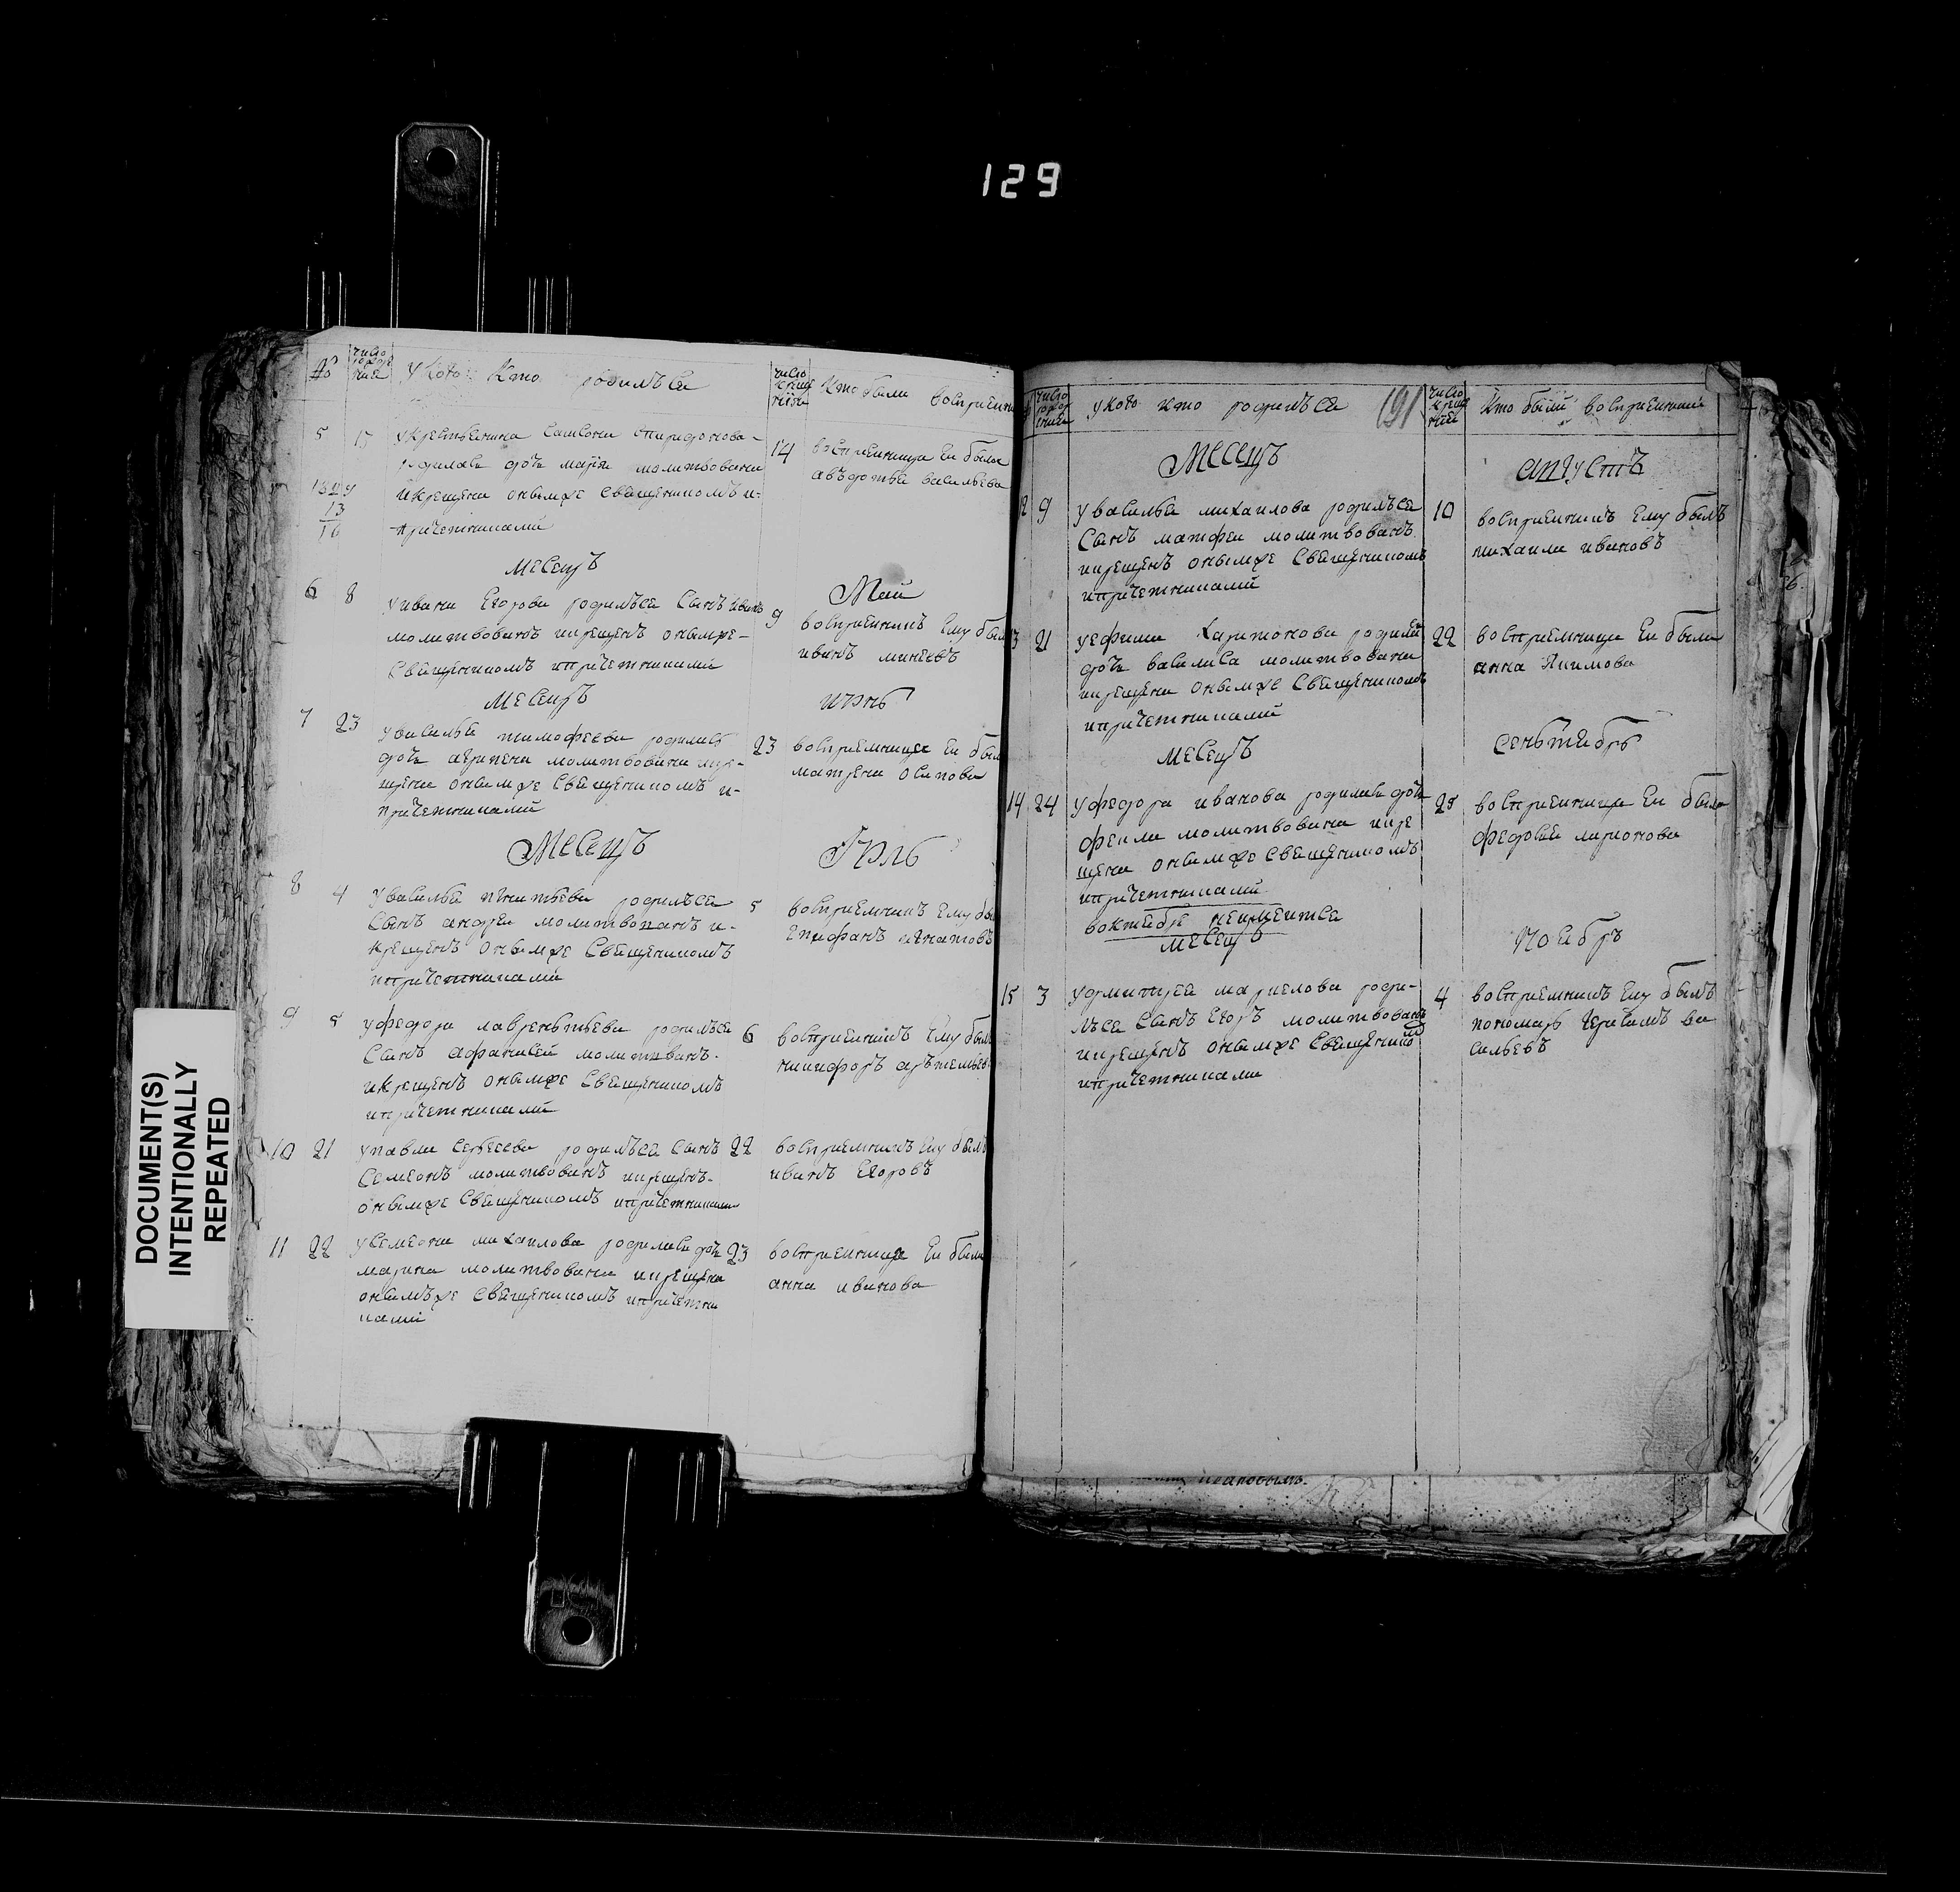 129
№ число рожде ния у кого кто родилъся число крещ ения кто были восприемни
5 13 у крестьянина самсона спиридонова
родилась дочь мария молитвована
и крещена онымже священникомъ и
13
16
причетниками
14 восприемница ей была
авъдотья васильева
месецъ Май
6 8 у ивана егорова родилъся сынъ иванъ
молитвованъ и крещенъ онымже
священникомъ и причетниками
9 восприемникъ ему был
иванъ минеевъ
месецъ июнь
7 23 у василья тимофеева родилась
дочь агрипена молитвована и кре
щена онымже священникомъ и
причетниками
23 восприемница ей был
матрена осипова
Месецъ Июль
8 4 у василья игнатьева родилъся
сынъ андреи молитвованъ и
крещенъ онымже священникомъ
и причетниками
5 восприемникъ ему бы
епифанъ игнатовъ
9 5 у федора лавреньтьева родилъся
сынъ афанасей молитванъ
и крещенъ онымже священникомъ
и причетниками
6 восприемникъ ему был
никифоръ арътемьев
10 21 у павла сергеева родилъся сынъ
семионъ молитвованъ и крещенъ
онымже священникомъ и причетниками
22 восприемникъ ему былъ
иванъ егоровъ
11 22 у семиона михаилова родилась дочь
марина молитвована и крещена
онымъже священникомъ и причетни
ками
23 восприемница ей была
анна иванова
число рожд ения у кого кто родилъся 191 число крещ ения кто были восприемники
Месецъ августъ
12 9 у василья михаилова родилъся
сынъ матфеи молитвованъ
и крещенъ онымже священникомъ
и причетниками
10 восприемникъ ему былъ
михаила ивановъ
13 21 у ефима харитонова родилась
дочь василиса молитвована
и крещена онымже священникомъ
и причетниками
22 восприемница ей была
анна якимова
месецъ сеньтябръ
14 24 у федора иванова родилась дочь
фекла молитвована и кре
щена онымже священникомъ
и причетниками
25 восприемница ей была
федосья ларионова
воктебре неимеится
месецъ ноебръ
15 3 у дмитрея маркелова роди
лъся сынъ егоръ молитвованъ
и крещенъ онымже священико
мъ
и причетниками
4 восприемникъ ему былъ
пономарь герасимъ ва
сильевъ
DOCUMENT(S)
INTENTIONALLY
REPEATED